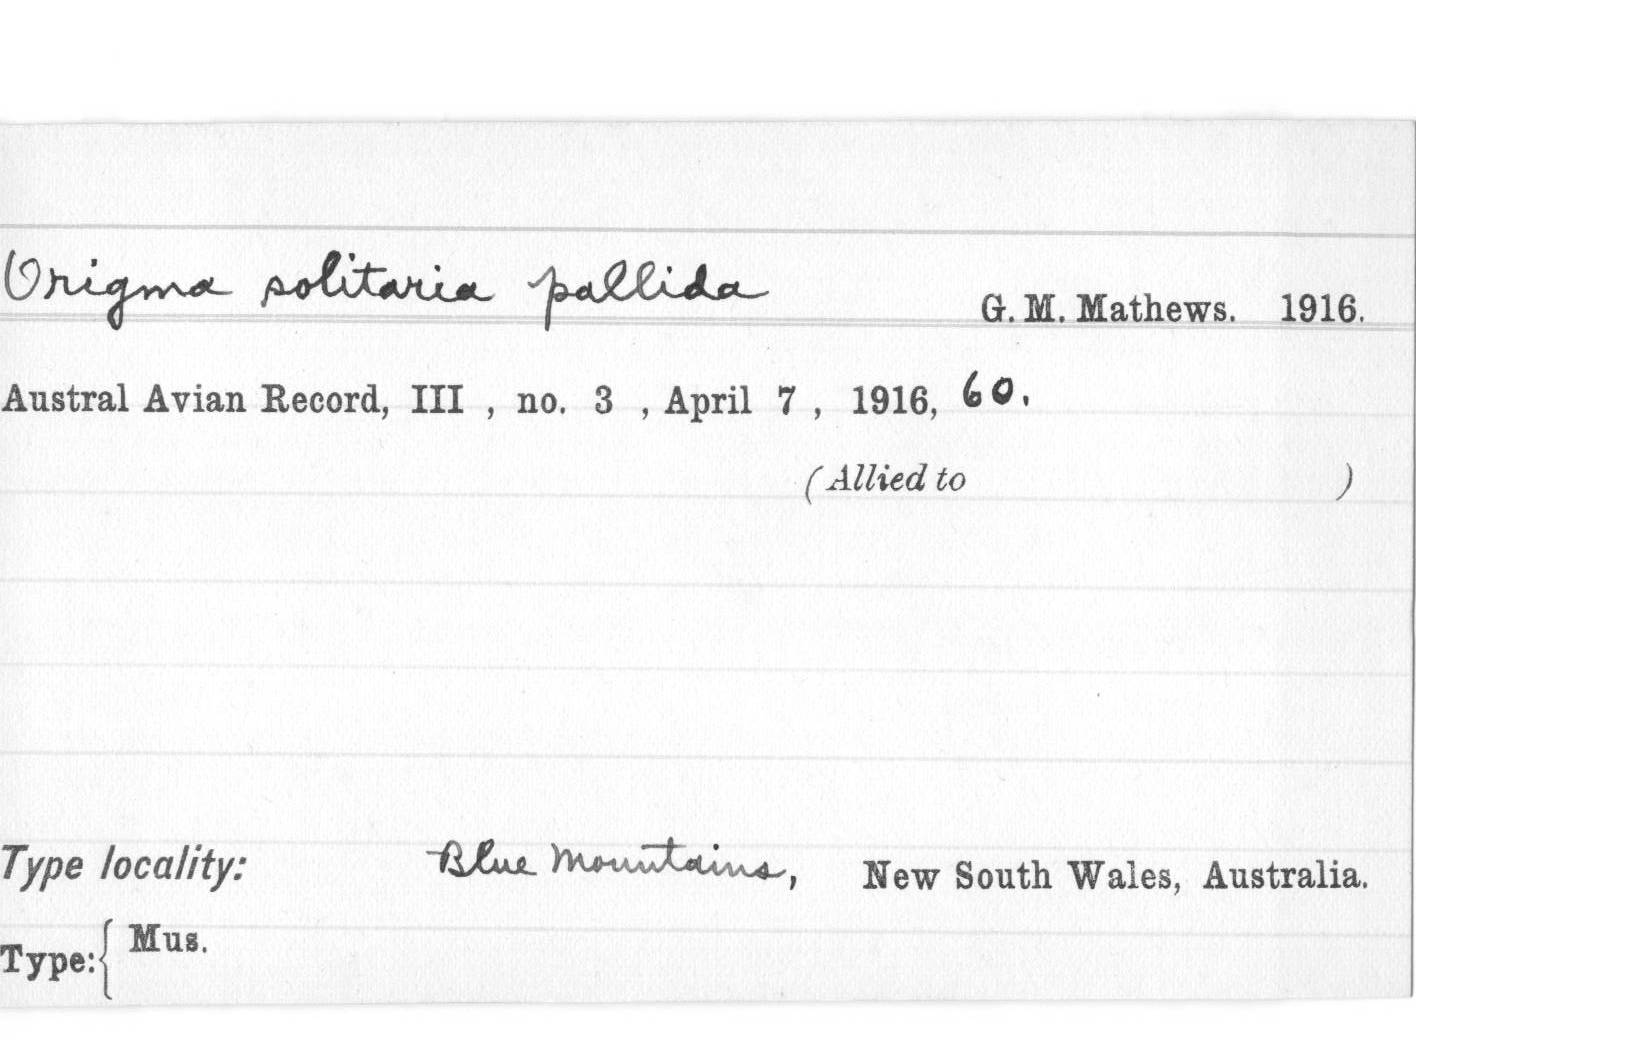 Origma solitaria pallida G. M. Mathews. 1916.
Austral Avian Record, III , no. 3 , April 7 , 1916, 60.
(Allied to )
Type locality: Blue Mountains, New South Wales, Australia.
Type:{ Mus.